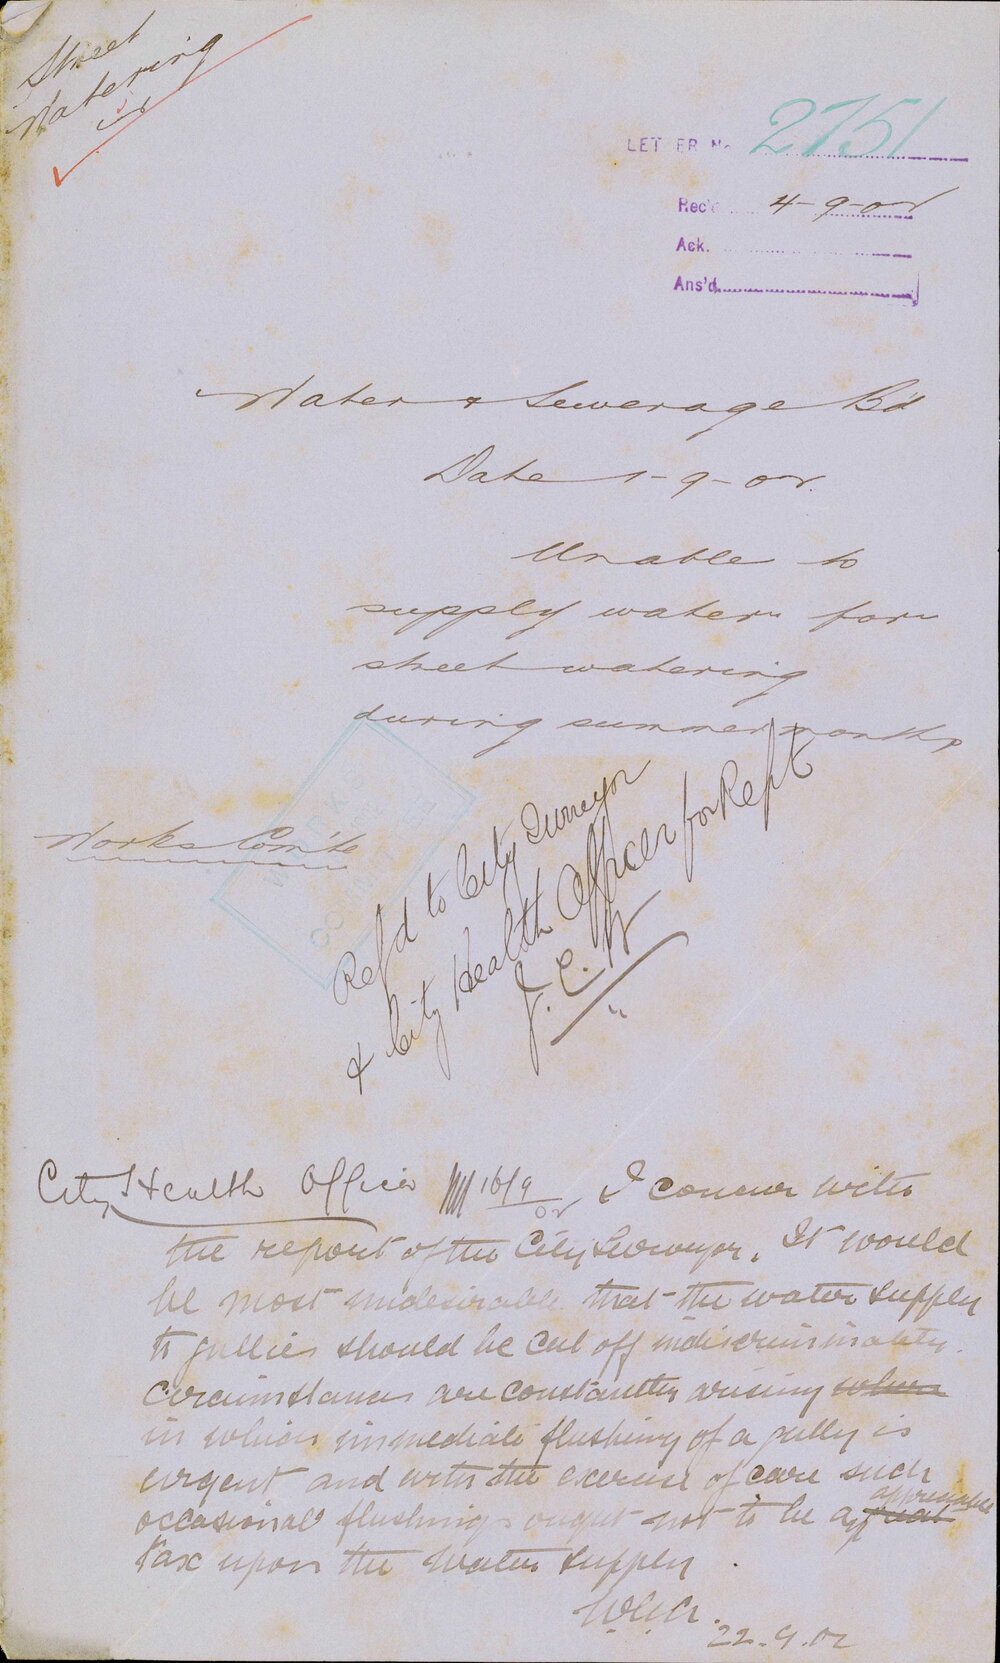 Street
Watering
LETTER No 2751
Rec'd 4-9-02
Ack.
Ans'd
Water & Sewerage Bd
Date 1-9-02.
Unable to
supply water for
street watering
during summer months
Works Com'te
WORKS
Ref'd to City Surveyor
& City Health Officer for Rept
J. C. W
City Health Officer 16/9/02 I concur with
the report of the City Surveyor. It would
be most undesirable that the water supply
to gullies should be cut off indiscriminately.
Circumstances are constantly arising when
in which immediate flushing of a gully is
urgent and with the exercise of care such
occasional flushings ought not to be a appreciable
tax upon the water supply.
W.G.A.
22.9.02